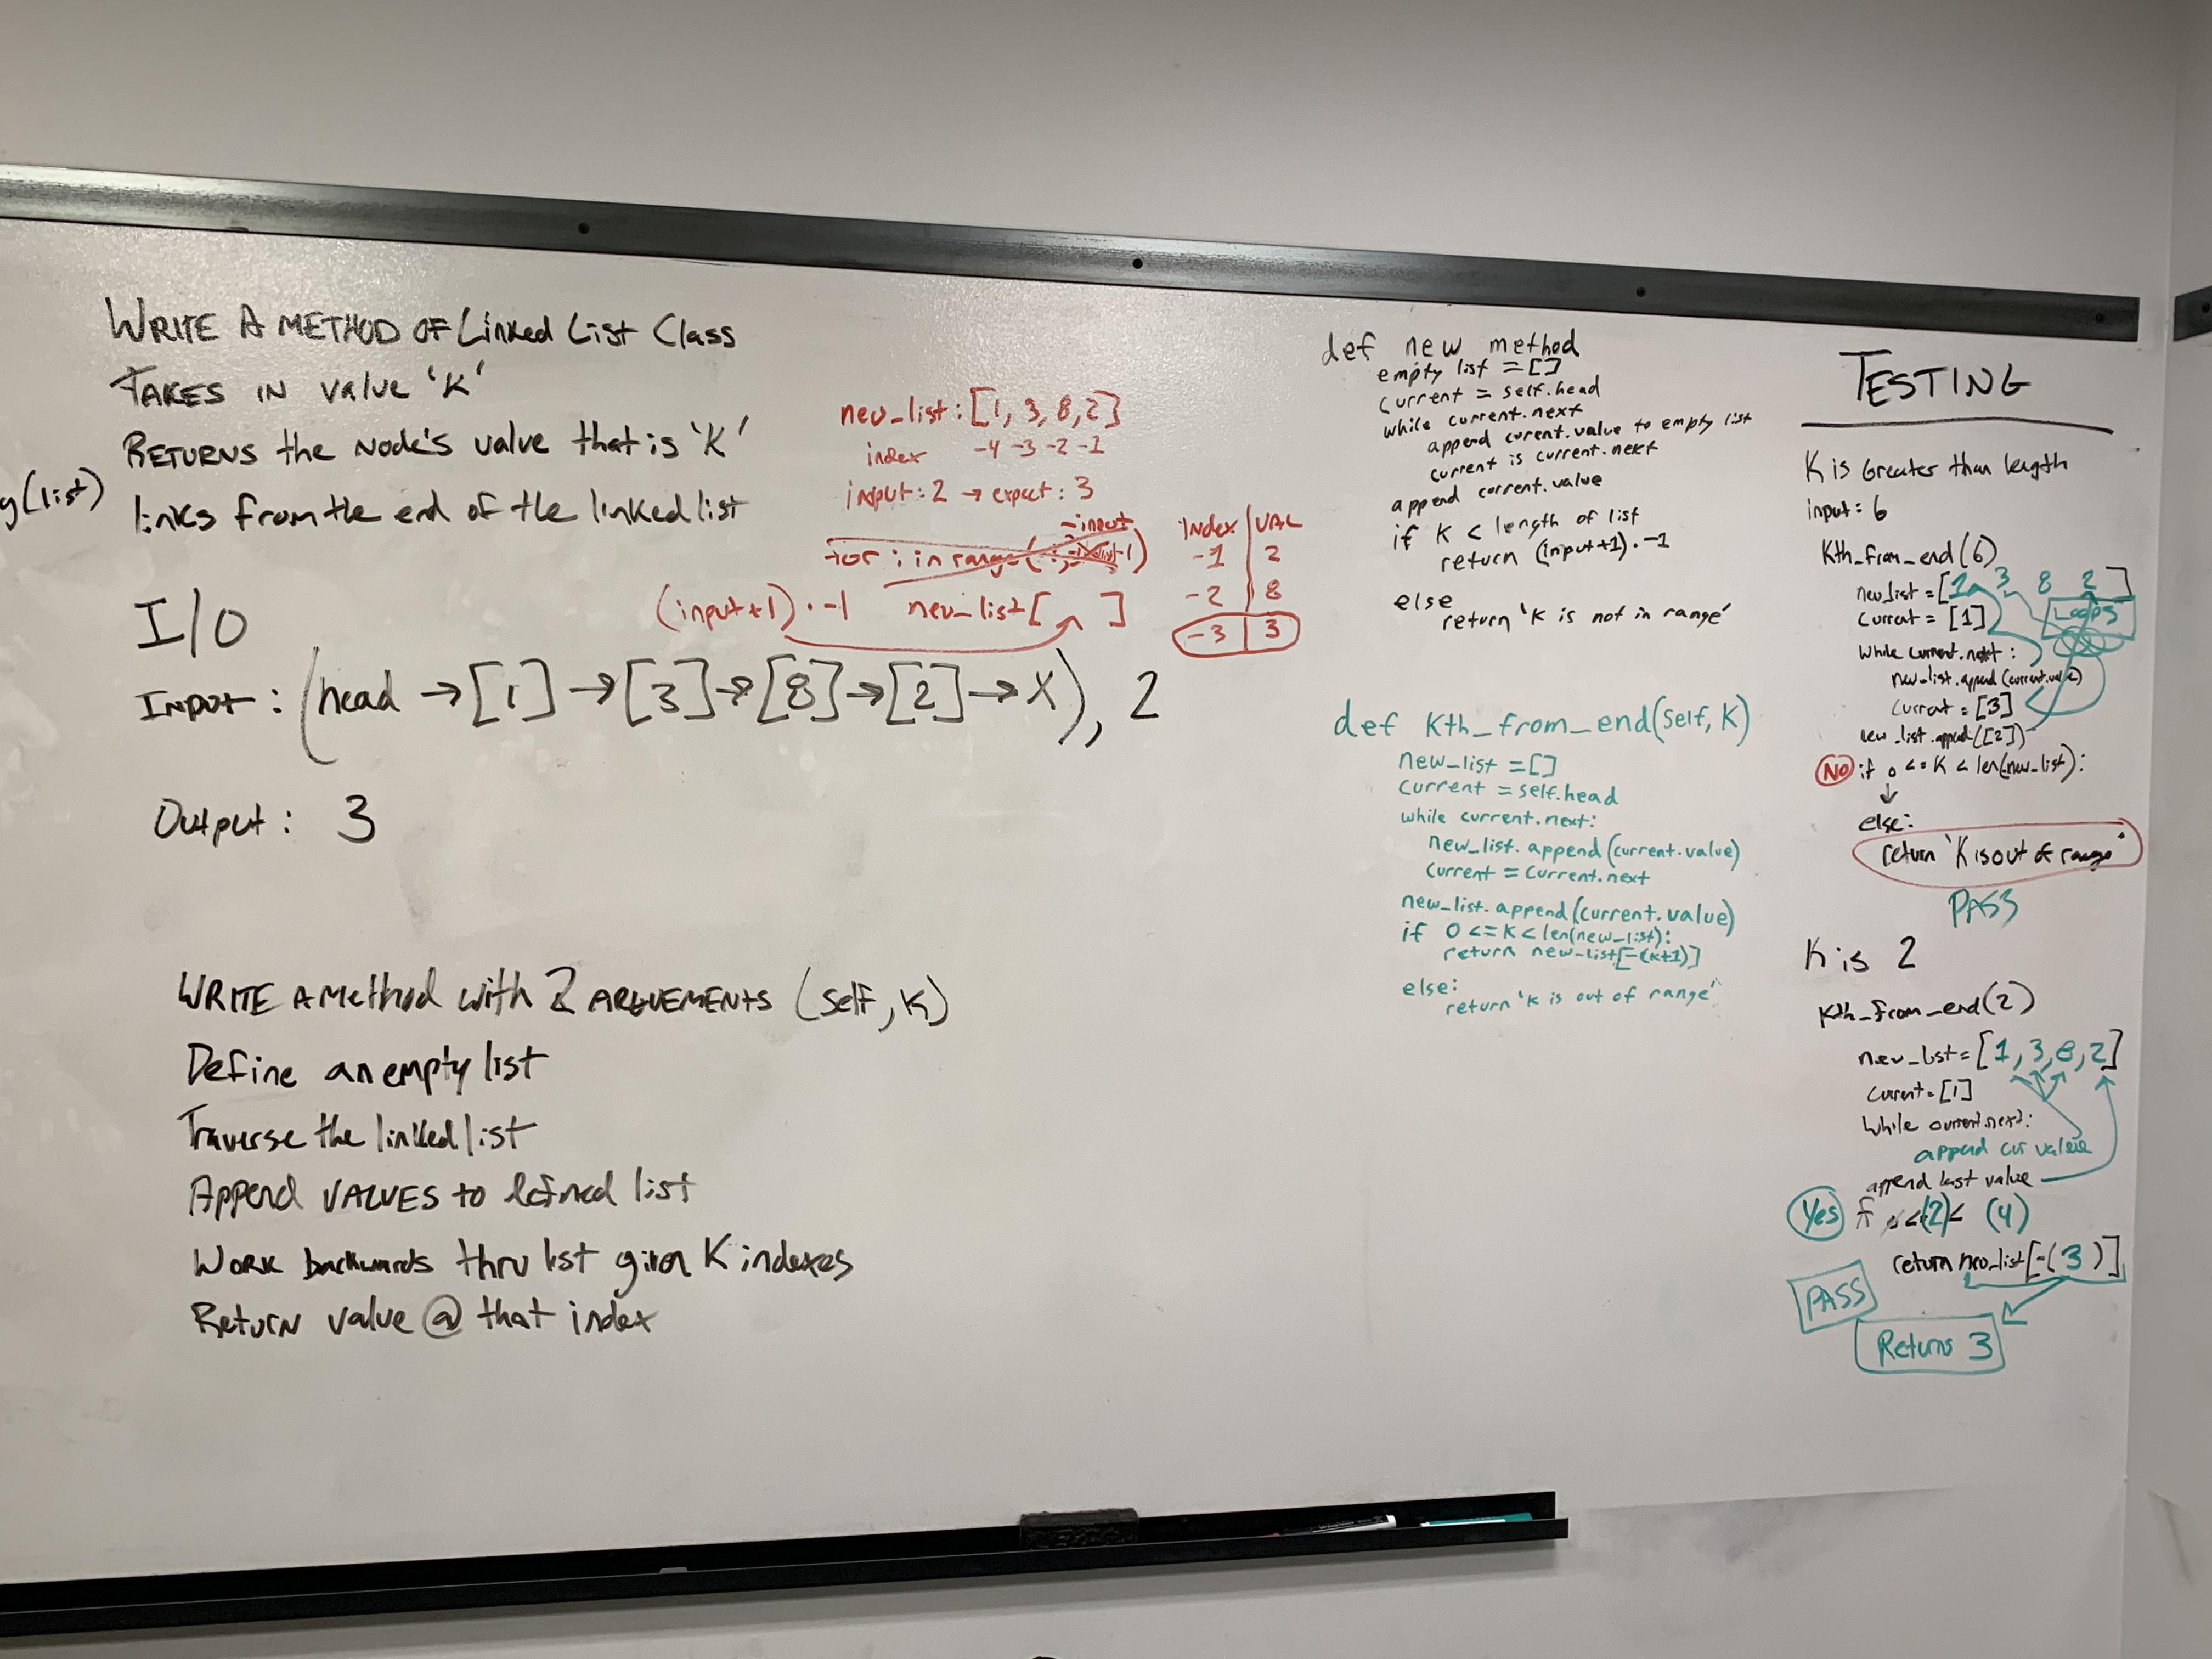 WRITE A METHOD OF Linked List Class
TAKES IN value 'K'
RETURNS the Node's value that is 'K'
links from the end of the linked list
y(list)
I/O
INPUT : (head → [1] → [3] → [8] → [2] → X), 2
Output : 3
WRITE A Method with 2 ARGUEMENTS (self, K)
Define an empty list
Traverse the linked list
Append VALUES to defined list
Work backwards thru list given K indexes
Return value @ that index
new_list : [1, 3, 8, 2]
index -4 -3 -2 -1
input : 2 → expect : 3
-input
for i in range(
(input+1) · -1 new_list[ ]
Index | VAL
-1 | 2
-2 | 8
-3 | 3
def new method
empty list = []
current = self.head
while current.next
append corent.value to empty list
current is current.next
append current.value
if K < length of list
return (input+1) · -1
else
return 'K is not in range'
def Kth_from_end(self, K)
new_list = []
current = self.head
while current.next:
new_list.append(current.value)
current = current.next
new_list.append(current.value)
if 0 <= K < len(new_list):
return new_list[-(k+1)]
else:
return 'k is out of range'
TESTING
K is Greater than length
input: 6
Kth_from_end(6)
new_list = [1 3 8 2]
Loops
Current = [1]
While current.next :
new_list.append(current.value)
current = [3]
new_list.append([2])
NO if 0 <= K < len(new_list):
↓
else:
return 'K is out of range'
PASS
K is 2
Kth_from_end(2)
new_list = [1, 3, 8, 2]
Current = [1]
While current.next:
append cur value
append last value
Yes if 0 < (2) < (4)
return new_list[-(3)]
PASS
Returns 3